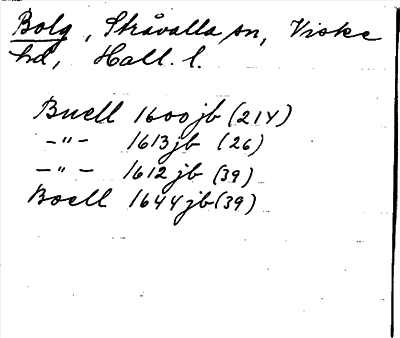 Bolg, Stråvalla sn, Viske
hd, Hall. l.
Buell 1600 jb (214)
-"- 1613 jb (26)
-"- 1612 jb (39)
Boell 1644 jb (39)